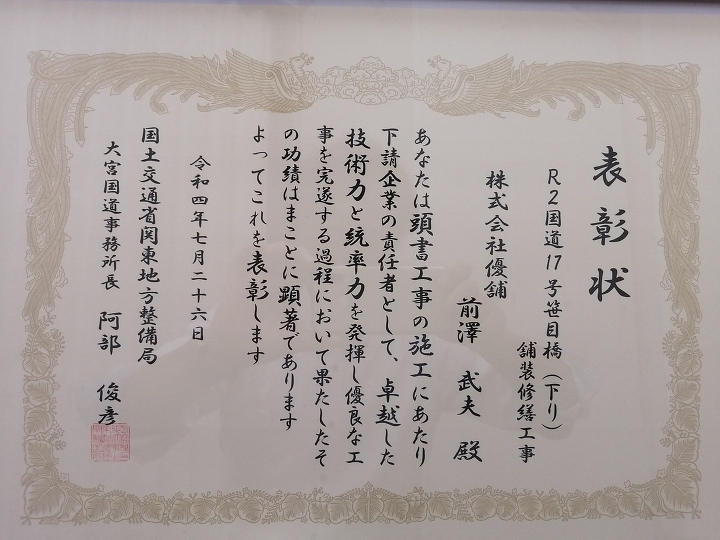 表彰状
R2国道17号笹目橋（下り）
舗装修繕工事
株式会社優舗
前澤 武夫 殿
あなたは頭書工事の施工にあたり
下請企業の責任者として、卓越した
技術力と統率力を発揮し優良な工
事を完遂する過程において果たしたそ
の功績はまことに顕著であります
よってこれを表彰します
令和四年七月二十六日
国土交通省関東地方整備局
大宮国道事務所長 阿部 俊彦